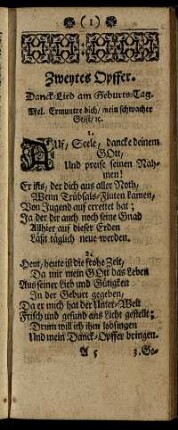 (1)
Zweytes Opffer.
Danck-Lied am Geburts-Tag.
Mel. Ermuntre dich, mein schwacher
Geist, ꝛc.
1.
AUf, Seele, dancke deinem
GOtt,
Und preise seinen Nah-
men!
Er ists, der dich aus aller Noth,
Wenn Trübsals-Fluten kamen,
Von Jugend auf errettet hat;
Ja der dir auch noch seine Gnad
Allhier auf dieser Erden
Läßt täglich neue werden.
2.
Heut, heute ist die frohe Zeit,
Da mir mein GOtt das Leben
Aus seiner Lieb und Gütigkeit
In der Geburt gegeben,
Da er mich hat der Unter-Welt
Frisch und gesund ans Licht gestellt;
Drum will ich ihm lobsingen
Und mein Danck-Opffer bringen.
A 5 3. So-